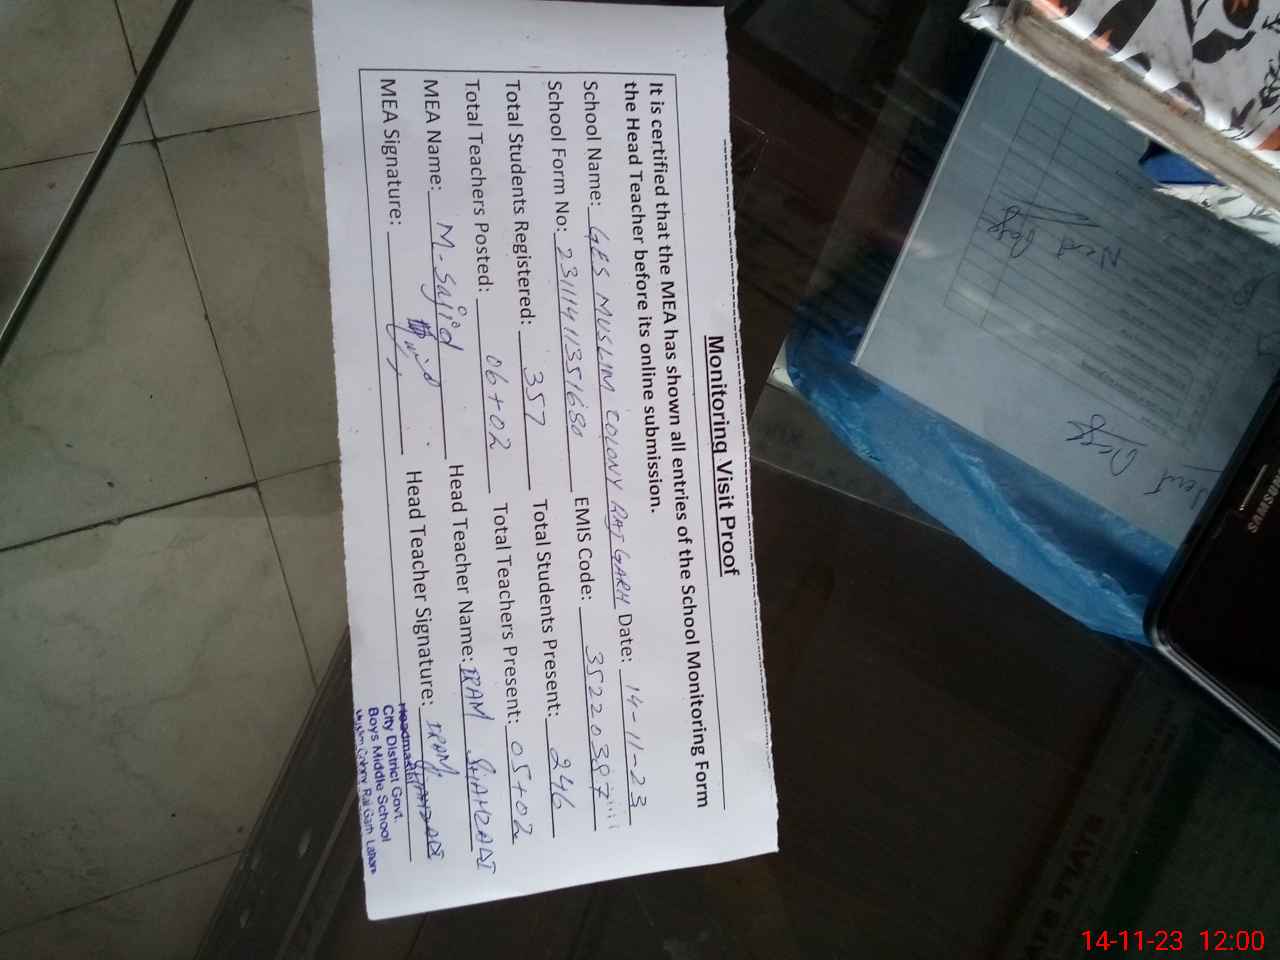 Monitoring Visit Proof
It is certified that the MEA has shown all entries of the School Monitoring Form
the Head Teacher before its online submission.
School Name: GES MUSLIM COLONY RAJ GARH Date: 14-11-23
School Form No: 231114113516 EMIS Code: 35220387
Total Students Registered: 357 Total Students Present: 246
Total Teachers Posted: 06+02 Total Teachers Present: 05+02
MEA Name: M-Sajid Head Teacher Name: IRAM SHAHZADI
MEA Signature: Head Teacher Signature: IRAM SHAHZADI
Headmaster
City District Govt.
Boys Middle School
Muslim Colony Raj Garh Lahore
Next Page
SAMSUNG
14-11-23 12:00